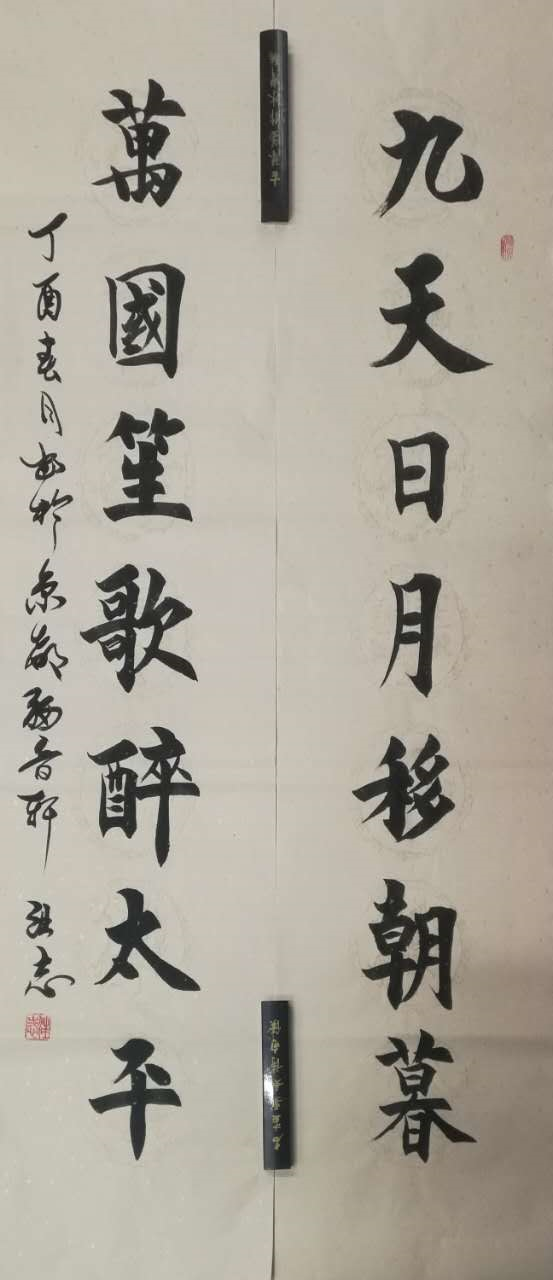 九天日月移朝暮
萬國笙歌醉太平
丁酉春月书於京都 香轩 志